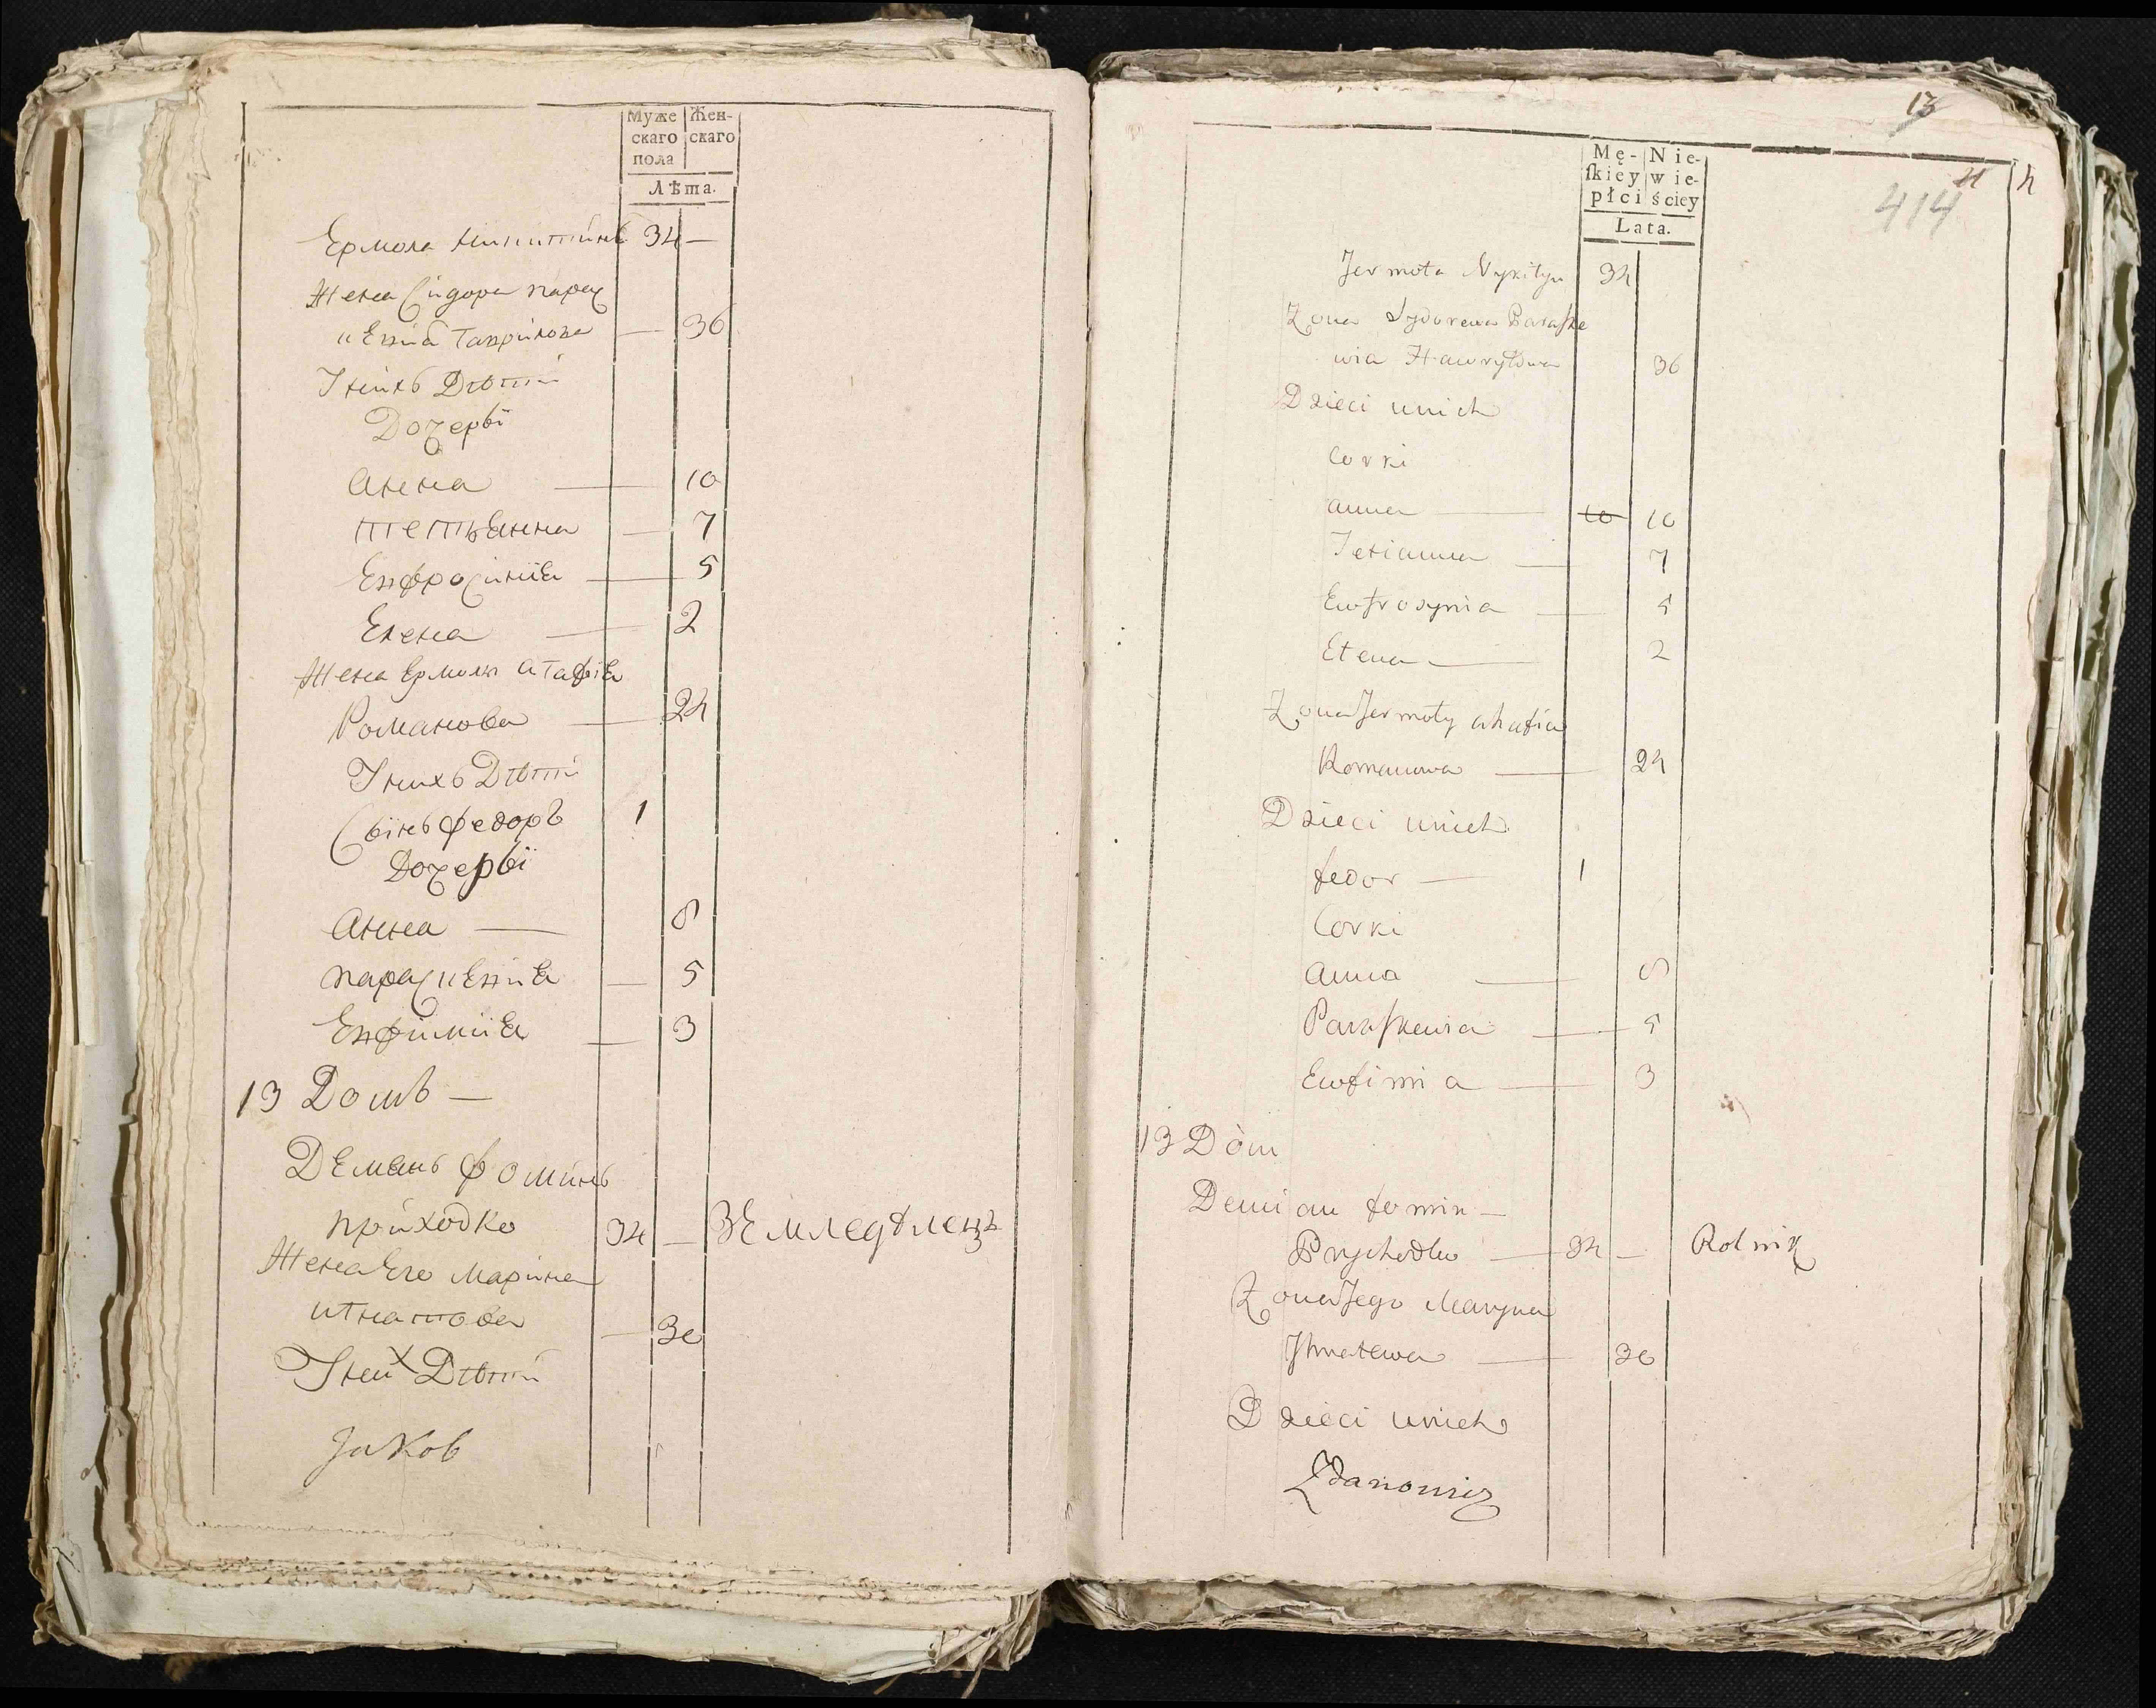 Муже Жен-
скаго скаго
пола
Лѣта.
Ермола Никитинъ 34 —
Жена Сидора Парас
кевиа Гаврилова — 36
У нихъ Дѣти
Дочеры
Анна — 10
Тетѣанна — 7
Евфросиниа — 5
Елена — 2
Жена Ермолы Агафиа
Романова — 24
У нихъ Дѣти
Сынъ Федоръ 1
Дочеры
Анна — 8
Параскевиа — 5
Евфимиа — 3
13 Домъ —
Демянъ Фоминъ
Приходко 34 — Земледѣлецъ
Жена Его Марина
Игнатова — 30
У них Дѣти
Jakob
13
414
11
Mę- Nie-
skiey wie-
płci ściey
Lata.
Jermoła Nykityn 34
Zona Sydorewa Paraske
wia Hawryłowa 36
Dzieci unich
Corki
Anna — 10 10
Tetianna — 7
Ewfrosynia — 5
Elena — 2
Zona Jermoły Ahafia
Romanowa — 24
Dzieci unich
Fedor — 1
Corki
Anna — 8
Paraskewia — 5
Ewfimia — 3
13 Dòm
Demian Fomin —
Prychodko — 34 — Rolnik
Zona Jego Maryna
Ihnatewa — 30
Dzieci unich
Zdanowicz